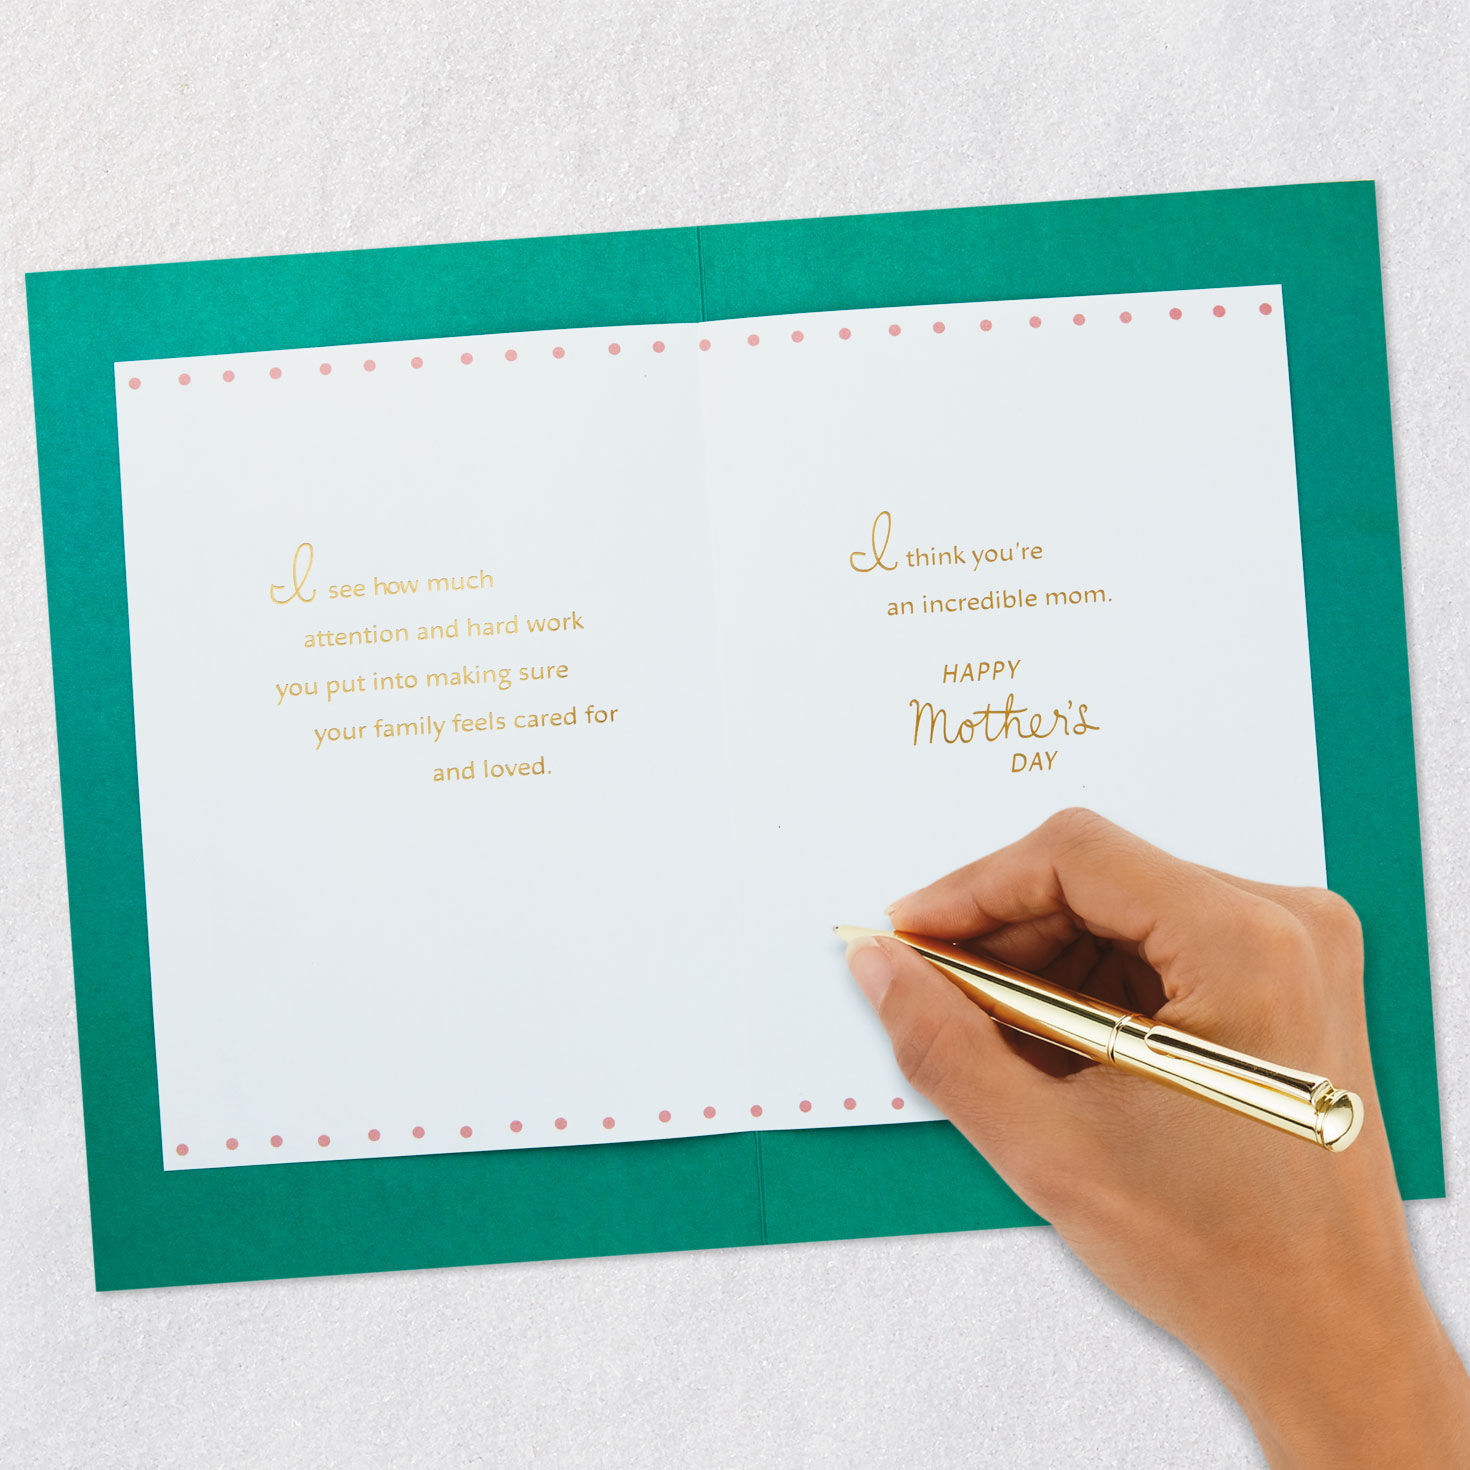 I see how much
attention and hard work
you put into making sure
your family feels cared for
and loved.
I think you're
an incredible mom.
HAPPY
Mother's
DAY